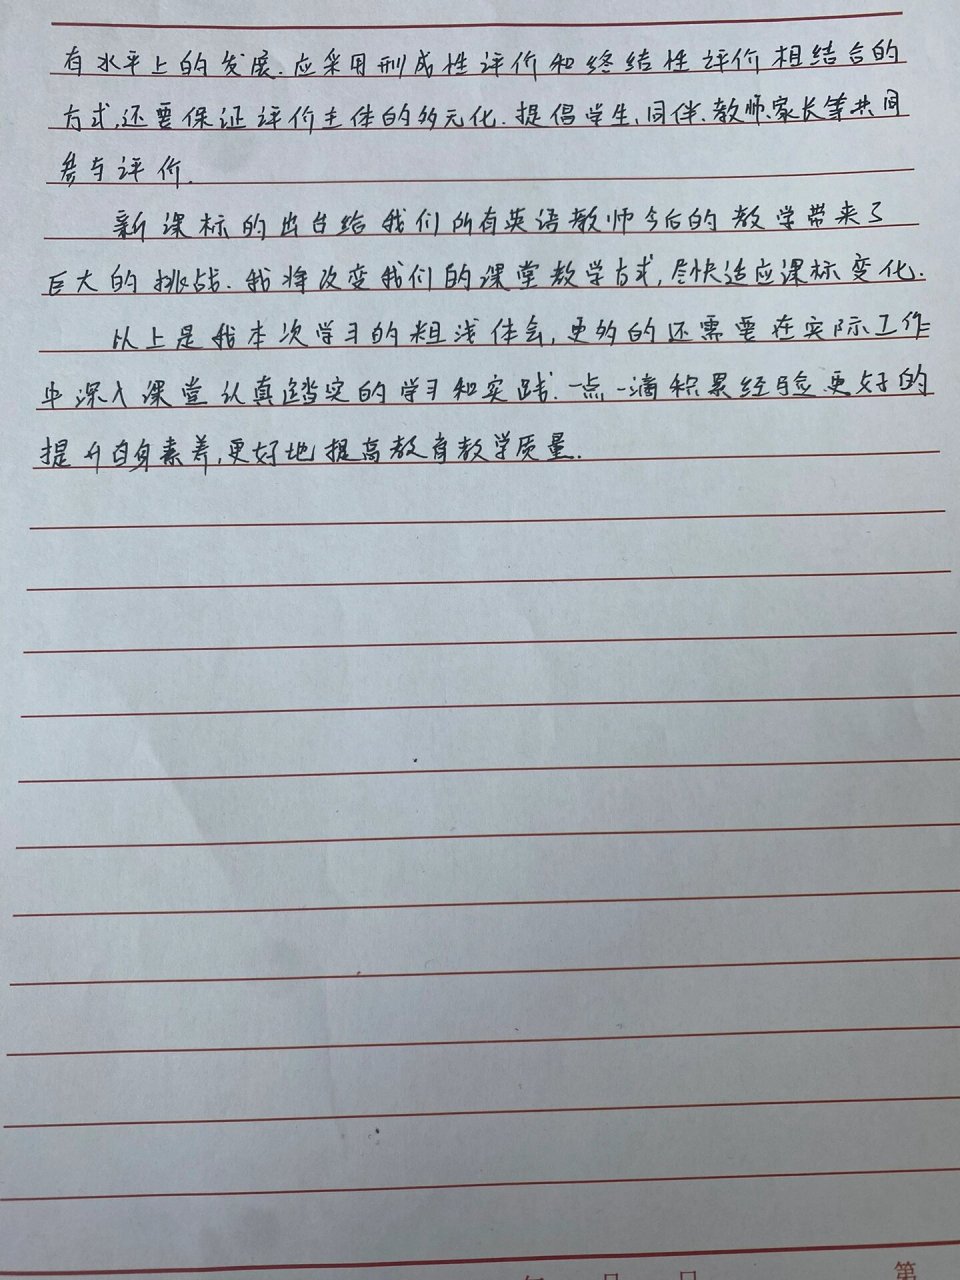 有水平上的发展.应采用刑成性评价和终结性评价相结合的
方式,还要保证评价主体的多元化.提倡学生、同伴、教师、家长等共同
参与评价.
新课标的出台给我们所有英语教师今后的教学带来了
巨大的挑战.我将改变我们的课堂教学方式,尽快适应课标变化.
以上是我本次学习的粗浅体会,更多的还需要在实际工作
中深入课堂认真踏实的学习和实践.一点一滴积累经验更好的
提升自身素养,更好地提高教育教学质量.
年 月 日 第